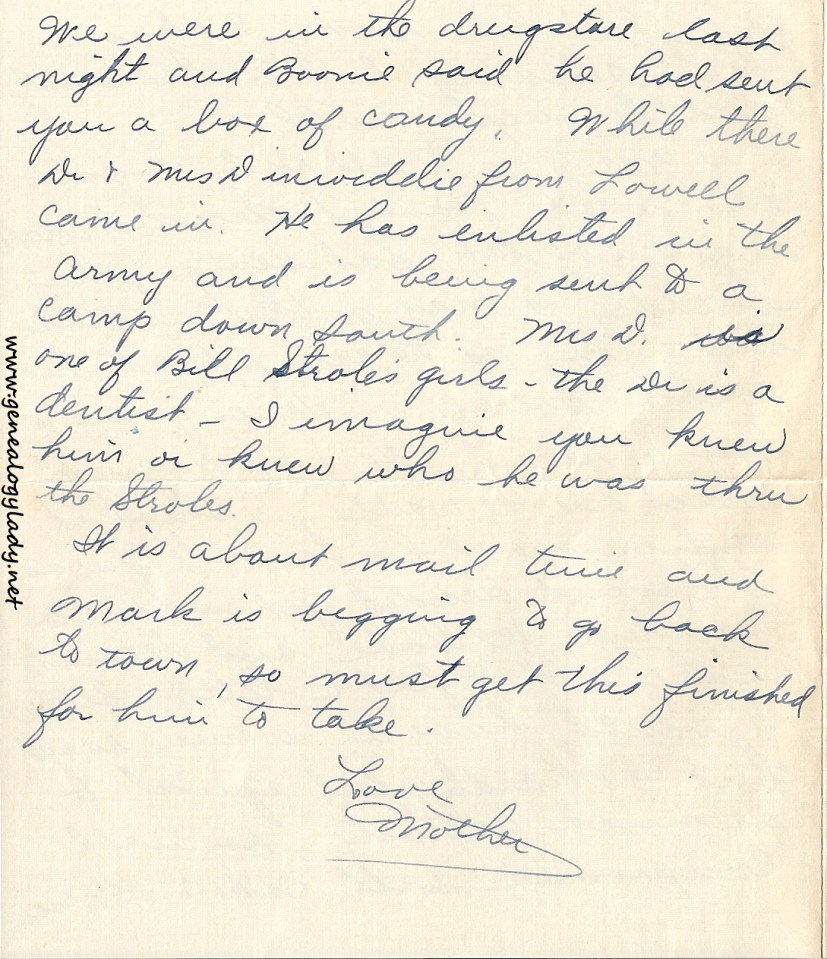 We were in the drugstore last
night and Boonie said he had sent
you a box of candy. While there
Dr & Mrs Dinwiddie from Lowell
came in. He has enlisted in the
army and is being sent to a
camp down south. Mrs D. is
one of Bill Stroles girls - the Dr is a
dentist - I imagine you knew
him or knew who he was thru
the Stroles.
It is about mail time and
Mark is begging to go back
to town, so must get this finished
for him to take.
Love
Mother
www.genealogylady.net